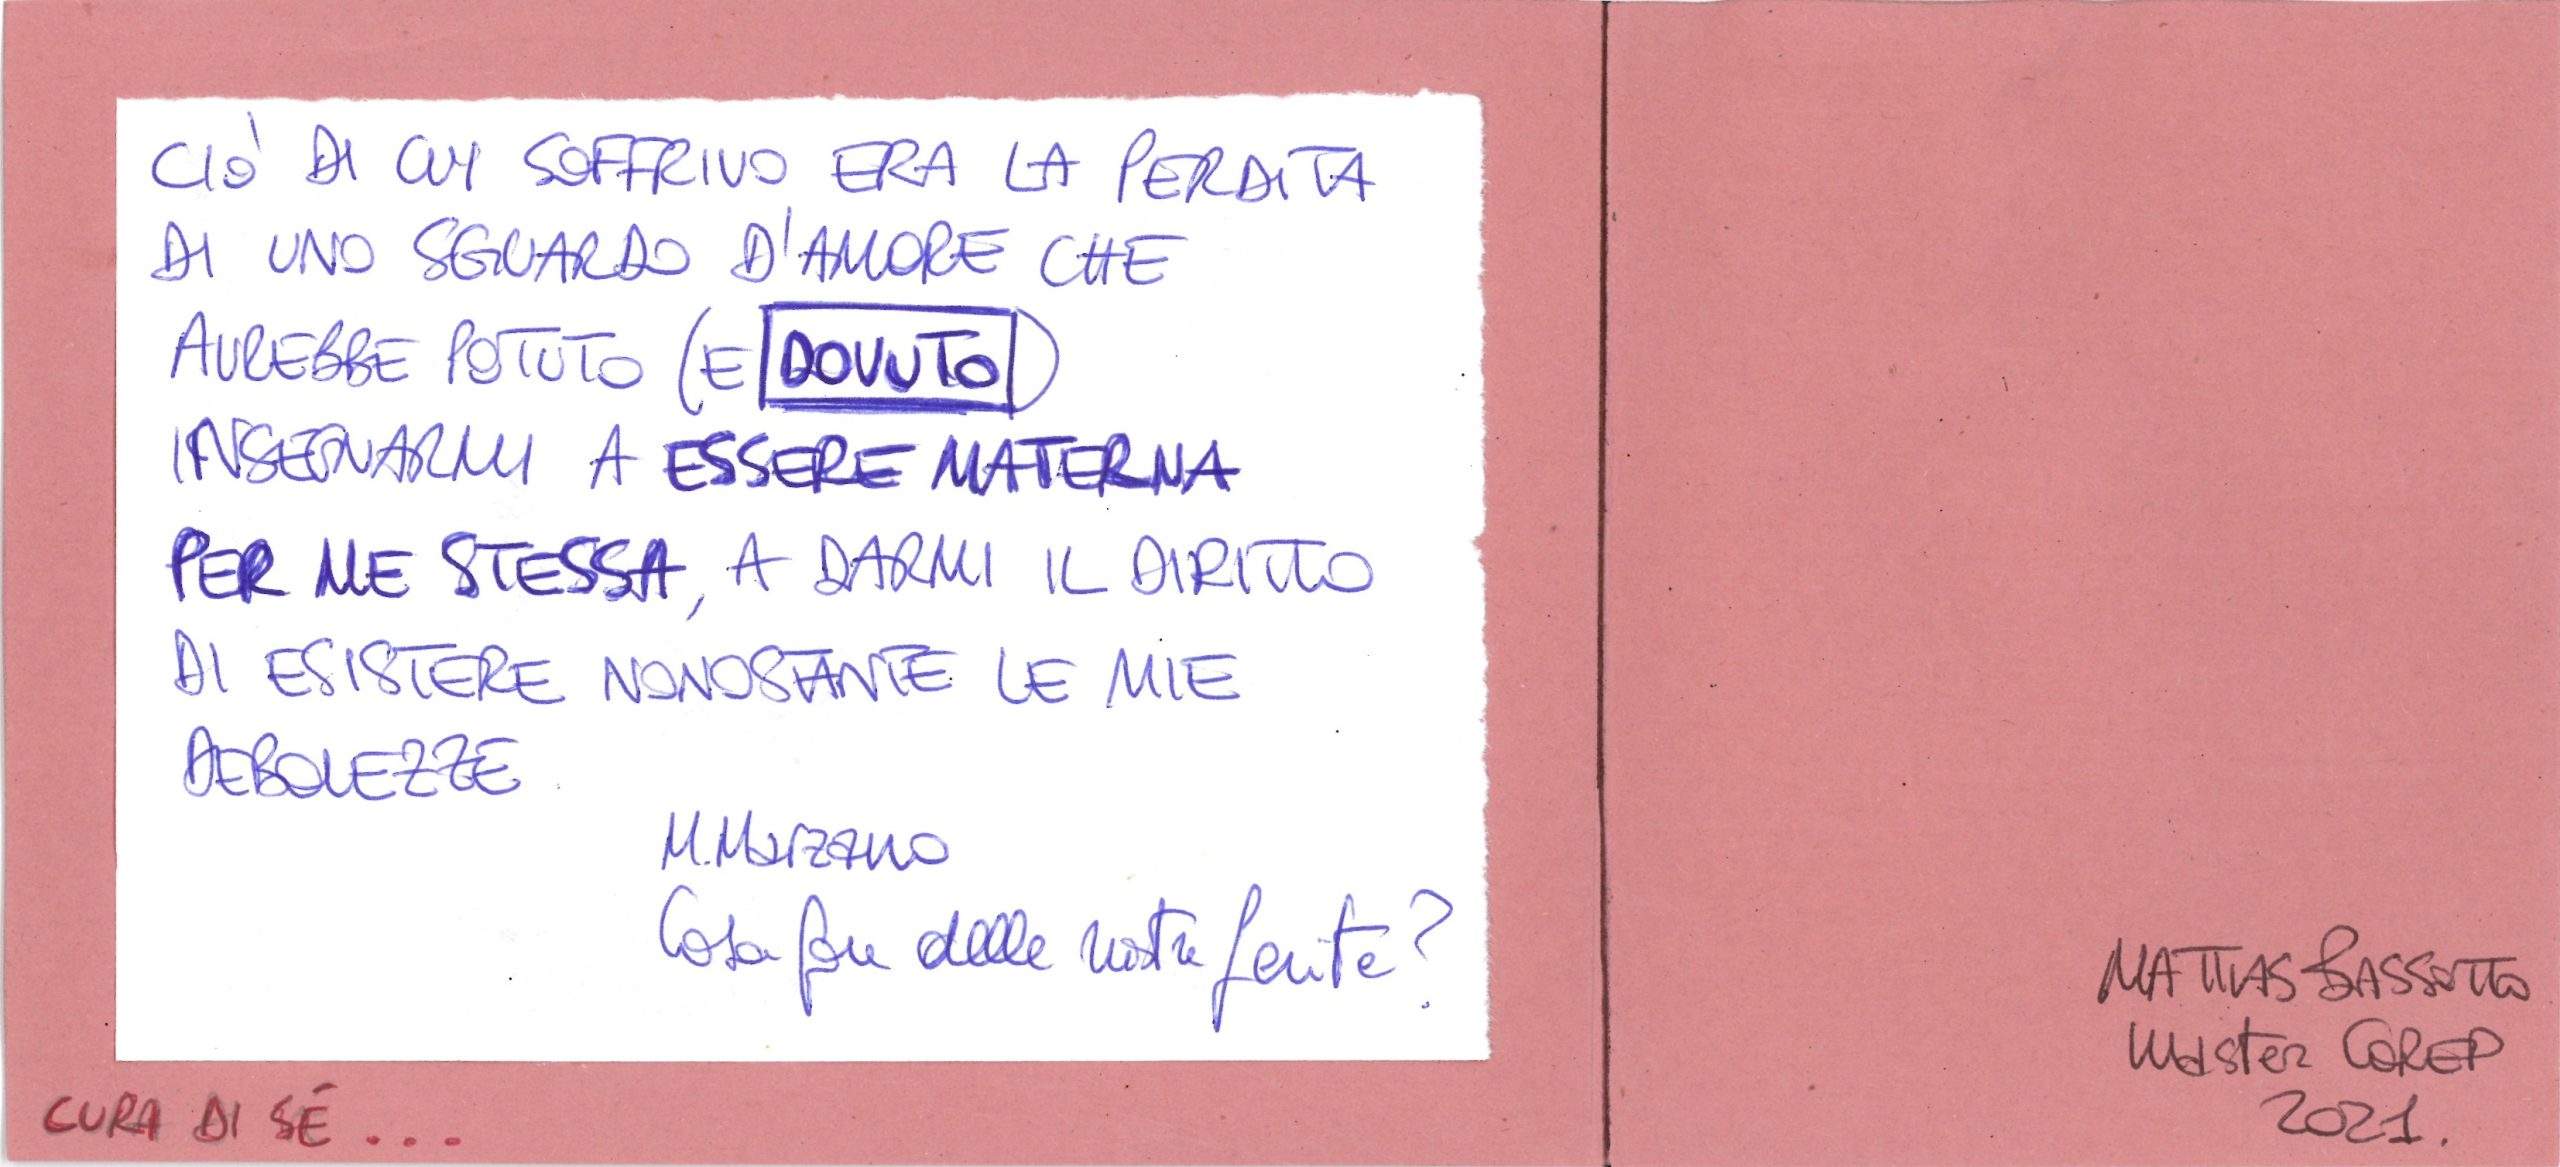 CIÒ DI CUI SOFFRIVO ERA LA PERDITA
DI UNO SGUARDO D'AMORE CHE
AVREBBE POTUTO (E DOVUTO)
INSEGNARMI A ESSERE MATERNA
PER ME STESSA, A DARMI IL DIRITTO
DI ESISTERE NONOSTANTE LE MIE
DEBOLEZZE
M. Marzano
Cosa fare delle nostre ferite?
CURA DI SÉ...
MATTIAS BASSOTTO
Master COREP
2021.